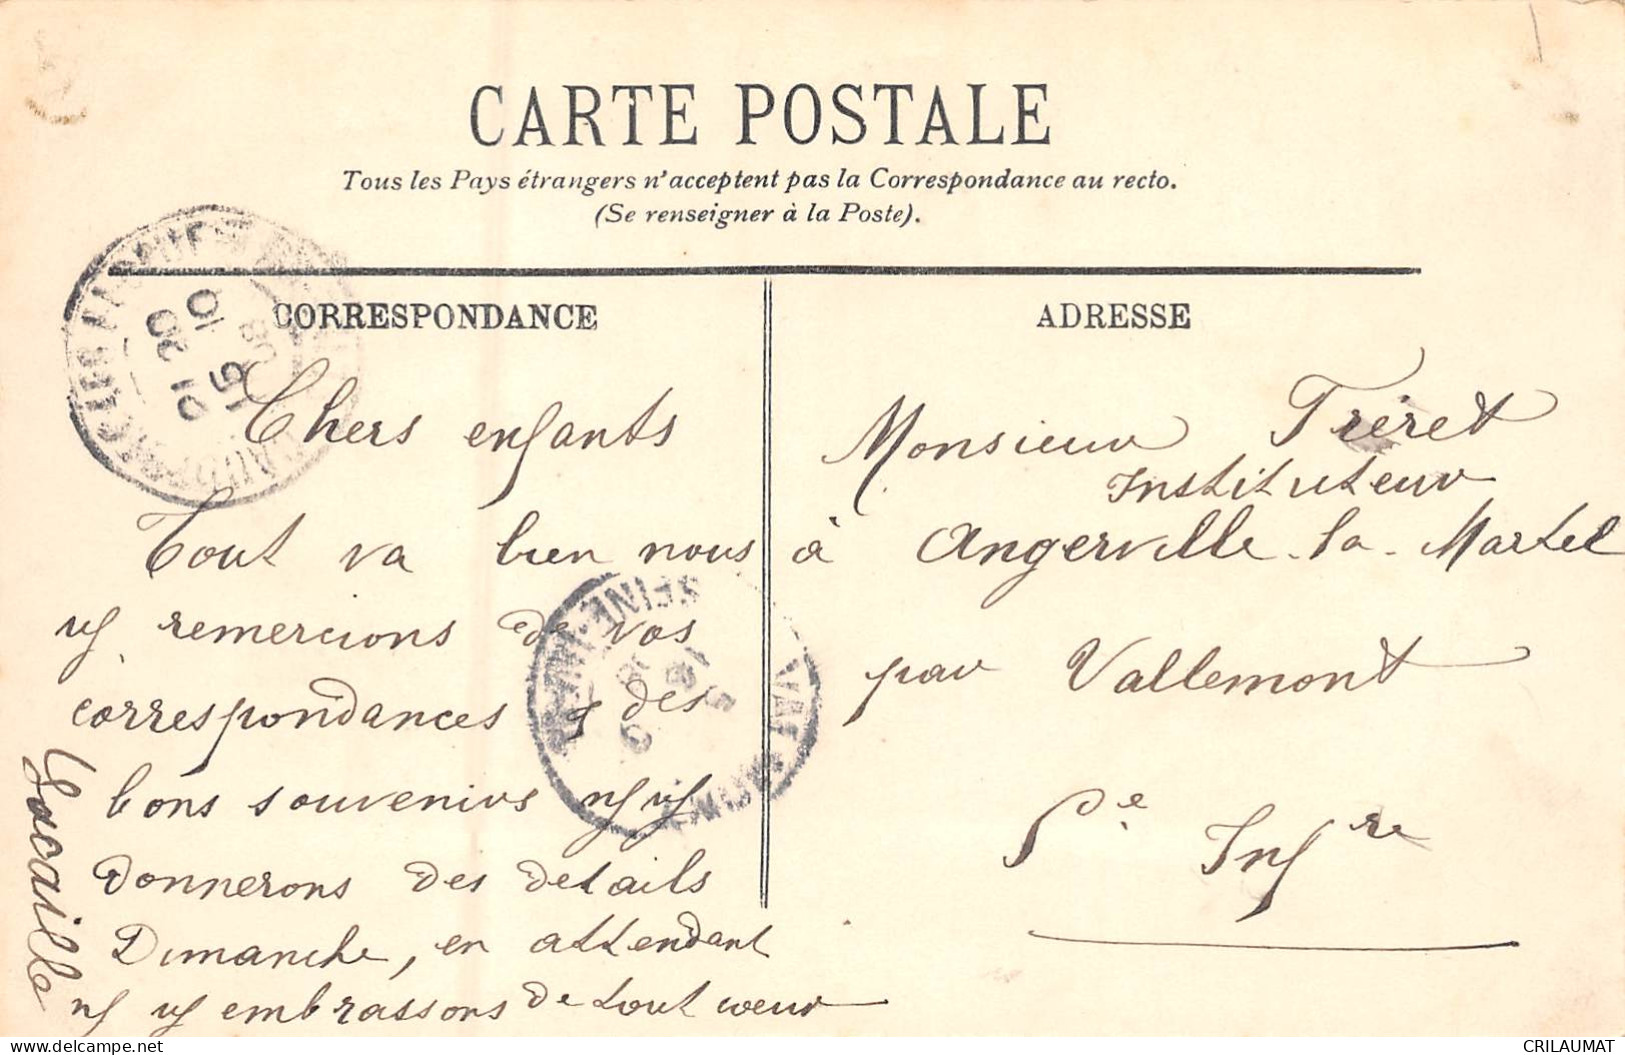 CARTE POSTALE
Tous les Pays étrangers n'acceptent pas la Correspondance au recto.
(Se renseigner à la Poste).
CORRESPONDANCE
Chers enfants
Tout va bien nous
vs remercions de vos
correspondances & des
bons souvenirs ns vs
donnerons des détails
Dimanche, en attendant
ns vs embrassons de tout cœur
Lacaille
ADRESSE
Monsieur Tréret
Instituteur
à Angerville-la-Martel
par Vallemont
Se Infre
delcampe.net
CRILAUMAT